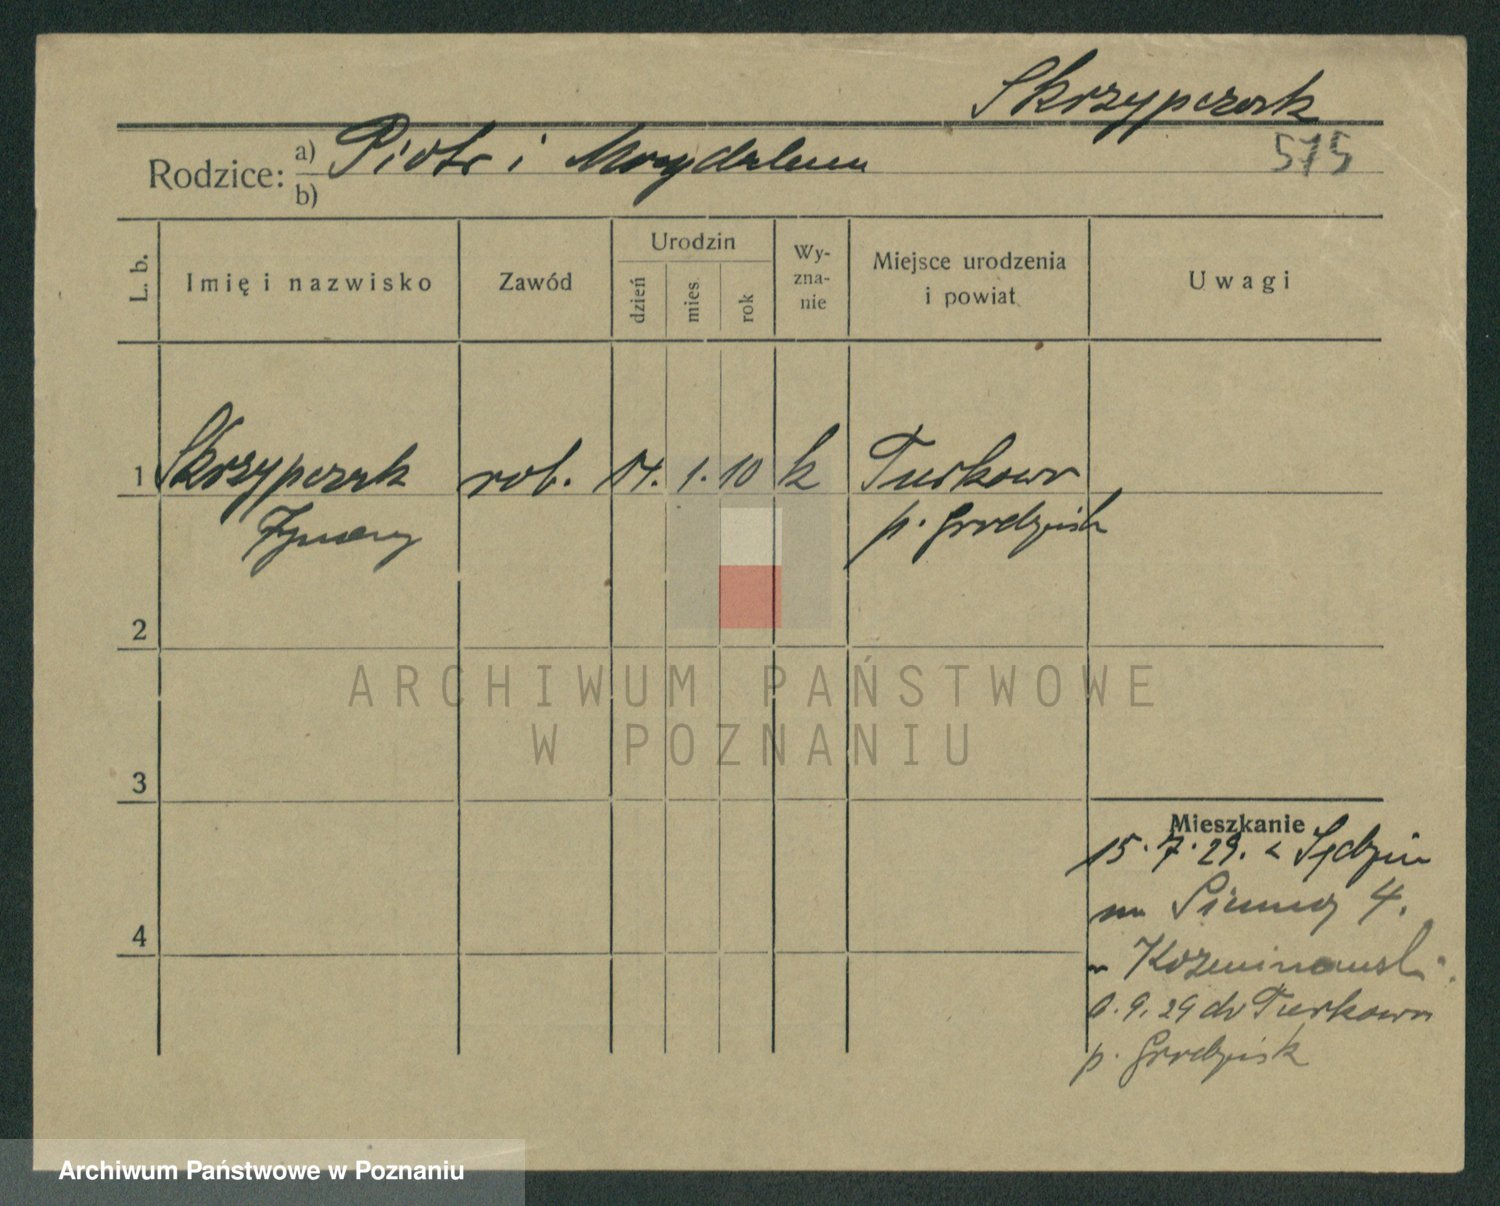 Skrzypczak
Rodzice: a) Piotr i Magdalena
b)
575
L. b.
Imię i nazwisko
Zawód
Urodzin
dzień
mies.
rok
Wy-
zna-
nie
Miejsce urodzenia
i powiat
Uwagi
1 Skrzypczak rob. 1. 10 k Turkowo
Ignacy p. Grodzisk
2
3
4
Mieszkanie
15.7.29. z Sędzin
na 4.
u
9.29 do Turkowa
p. Grodzisk
ARCHIWUM PAŃSTWOWE
W POZNANIU
Archiwum Państwowe w Poznaniu